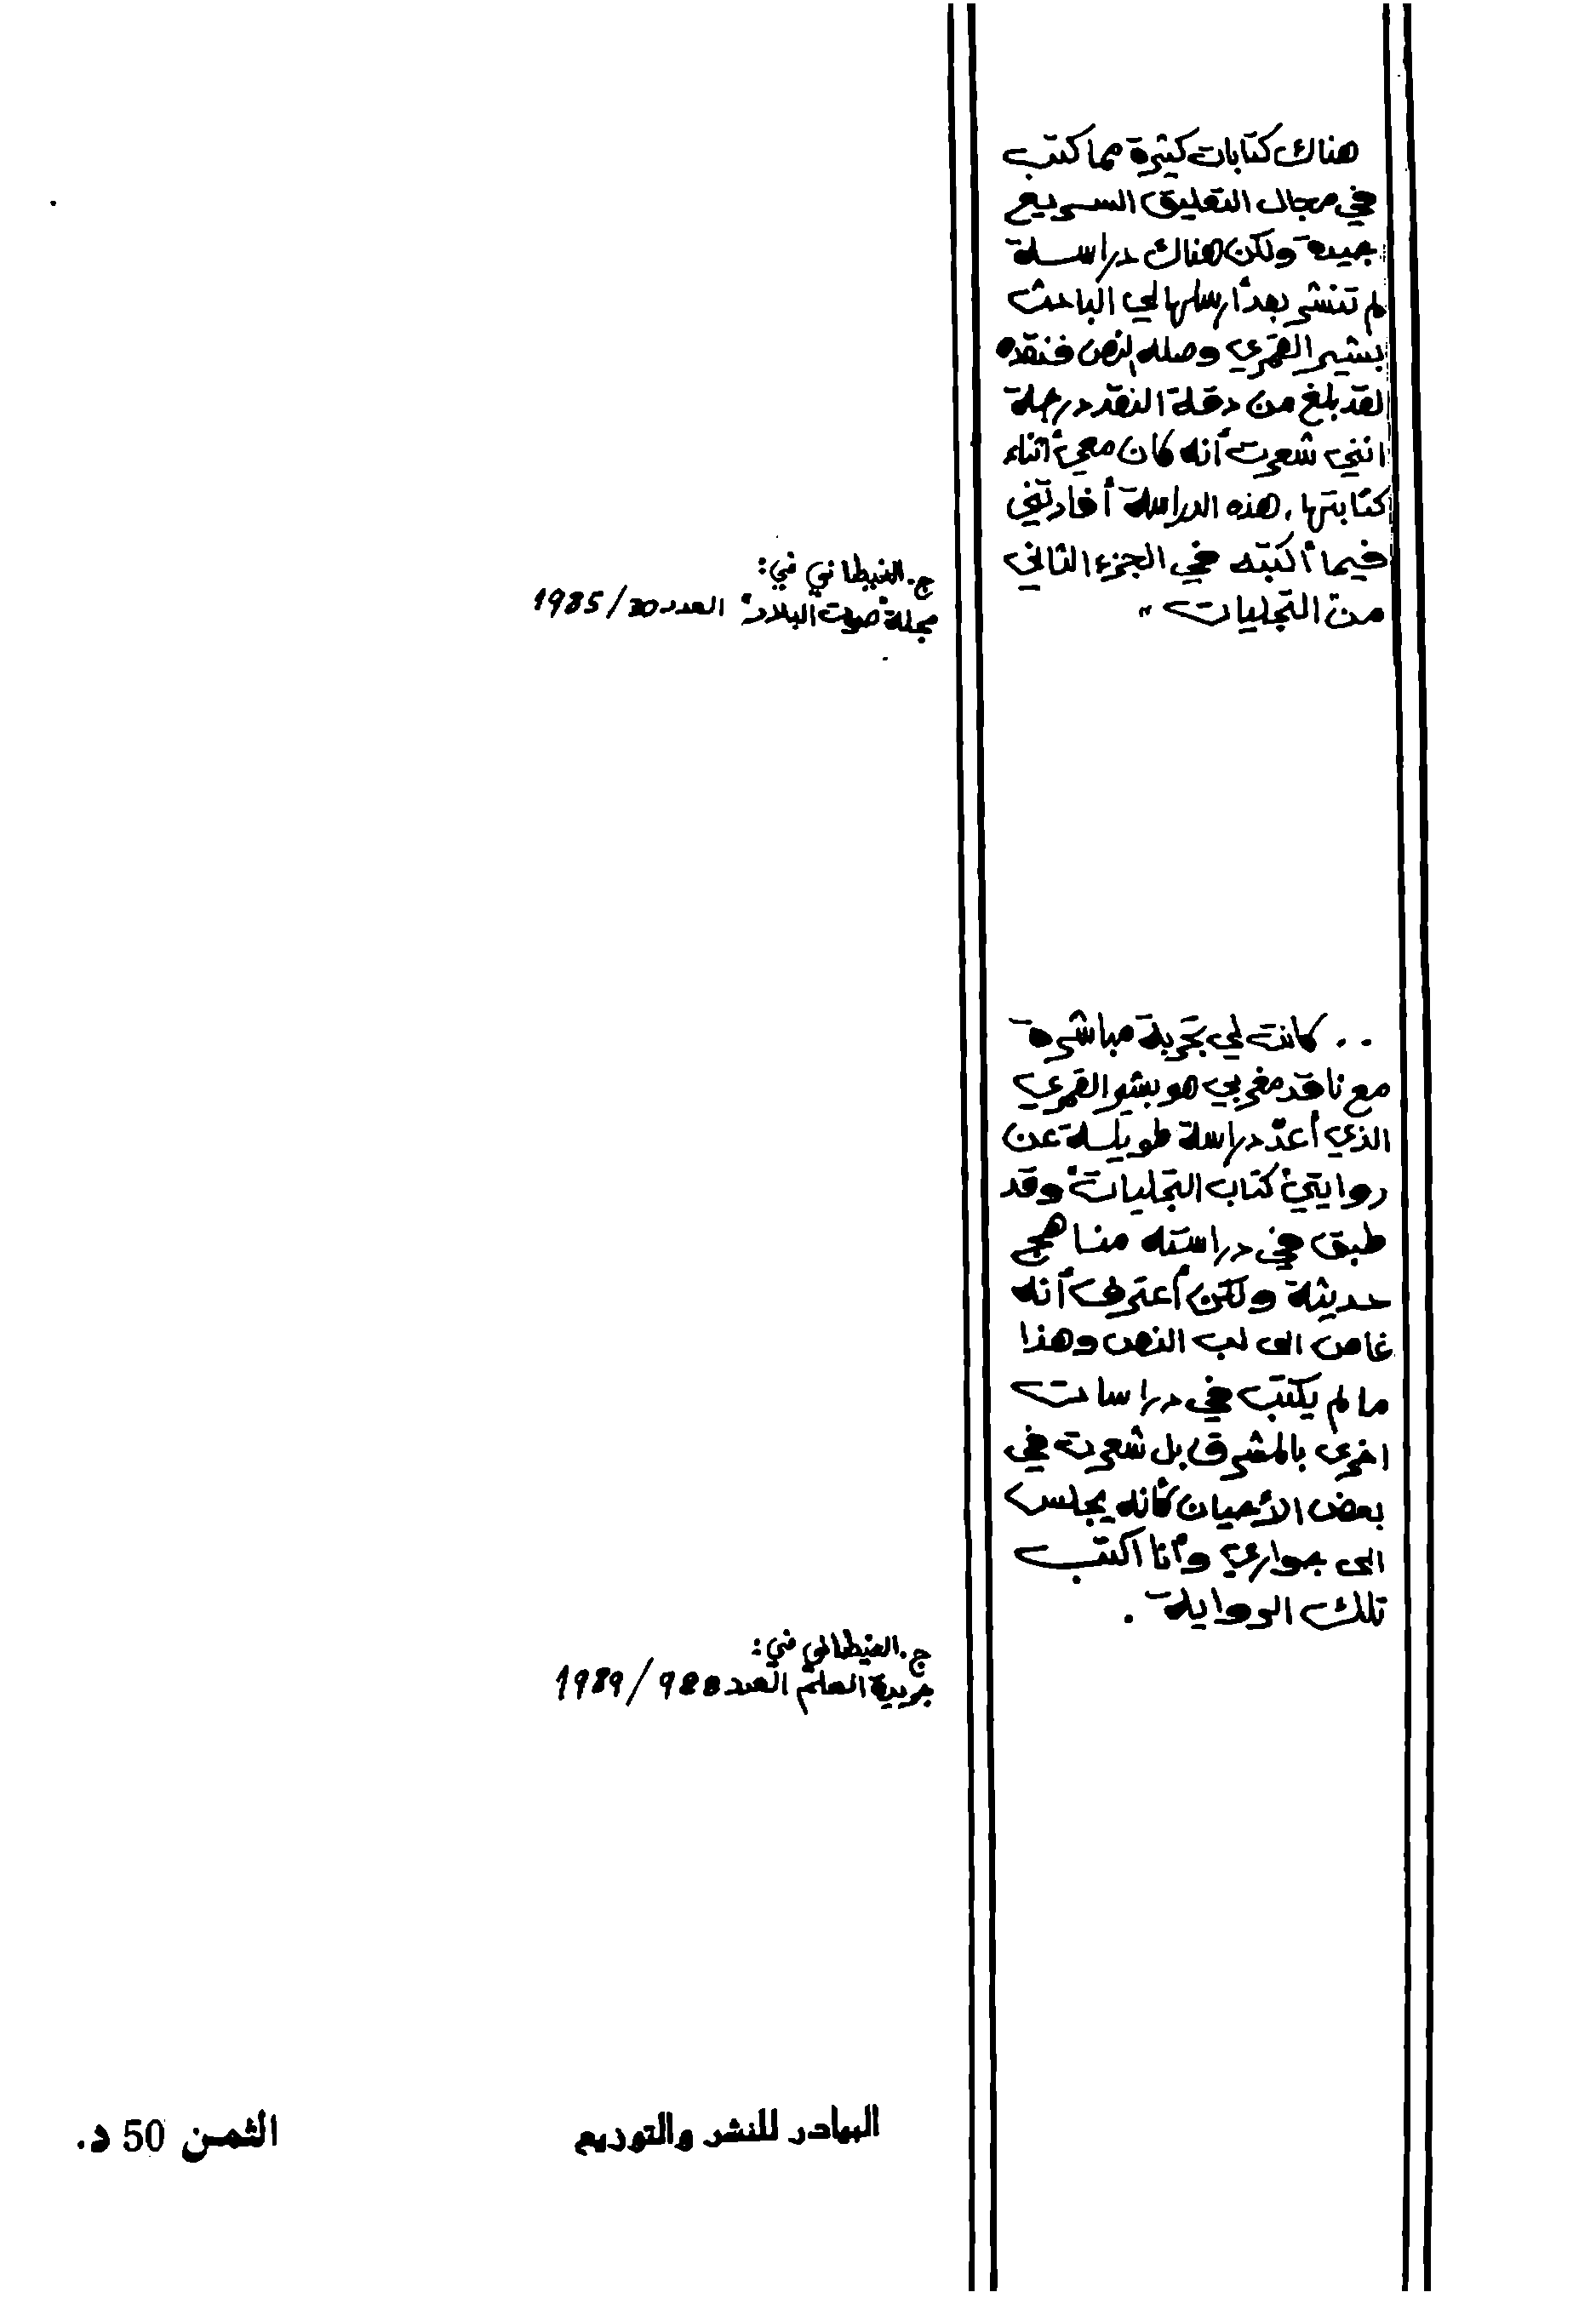 هناك كتابات كثيرة مما كتب
في مجال التعليق السريع
جيدة ولكن هناك دراسة
لم تنشر بعد أرسلها لي الباحث
بشير القمري وصله النص فنقده
لقد بلغ من دقة النقد درجة
انني شعرت أنه كان معي أثناء
كتابتها. هذه الدراسة أفادتني
فيما أكتبه في الجزء الثاني
من التجليات"
ج. الغيطاني في:
مجلة "صوت البلاد" العدد 30/1985
.. كانت لي تجربة مباشرة
مع ناقد مغربي هو بشير القمري
الذي أعدّ دراسة طويلة عن
روايتي "كتاب التجليات" وقد
طبق في دراسته مناهج
حديثة ولكن أعترف أنه
غاص الى لب النص وهذا
ما لم يكتب في دراسات
اخرى بالمشرق بل شعرت في
بعض الأحيان كأنه يجلس
الى جواري وأنا اكتب
تلك الرواية.
ج. الغيطاني في:
جريدة العلم العدد 988/1989
البهادر للنشر والتوزيع
الثمن 50 د.